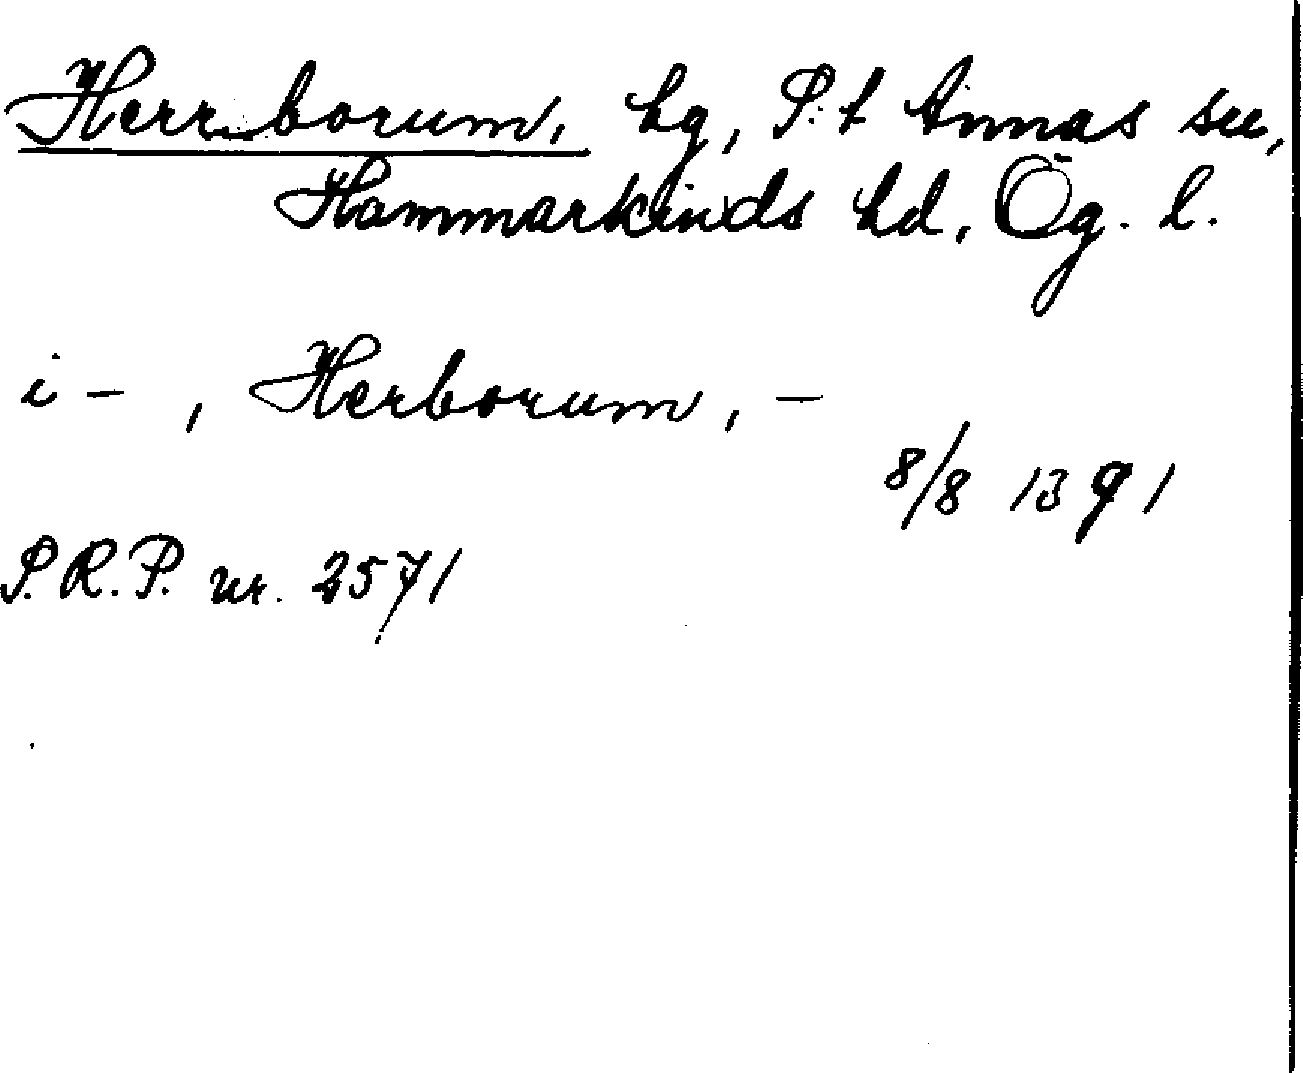 Herrborum, hg, S:t Annas sn,
Hammarkinds hd, Ög. l.
i – , Herborum, –
8/8 1391
S.R.P. nr. 2571